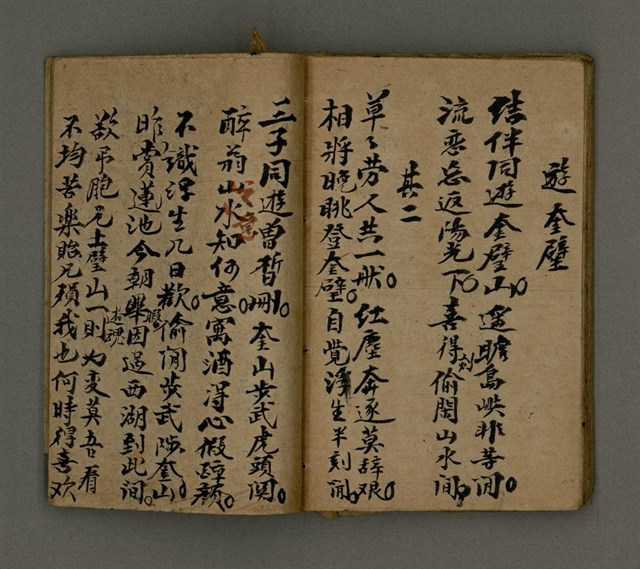 遊奎璧
结伴同遊奎璧山。遥瞻島嶼非等閒。
流恋忘返陽光下。喜得刻偷閑山水間。
其二
草々劳人共一般。红塵奔逐莫辞艰。
相將晚眺登奎璧。自覺浮生半刻閒。
三子同遊曾晢刪。奎山步武虎頭関。
醉翁山水知何意。寓酒得心假醉顏。
不識浮生几日歡。偷閒步武陟奎山。
昨賞蓮池今朝樂。因過西湖到此間。
欲吊胞兄土璧山一則为変莫吾看
不均苦楽貽兄殞我也何時得喜欢